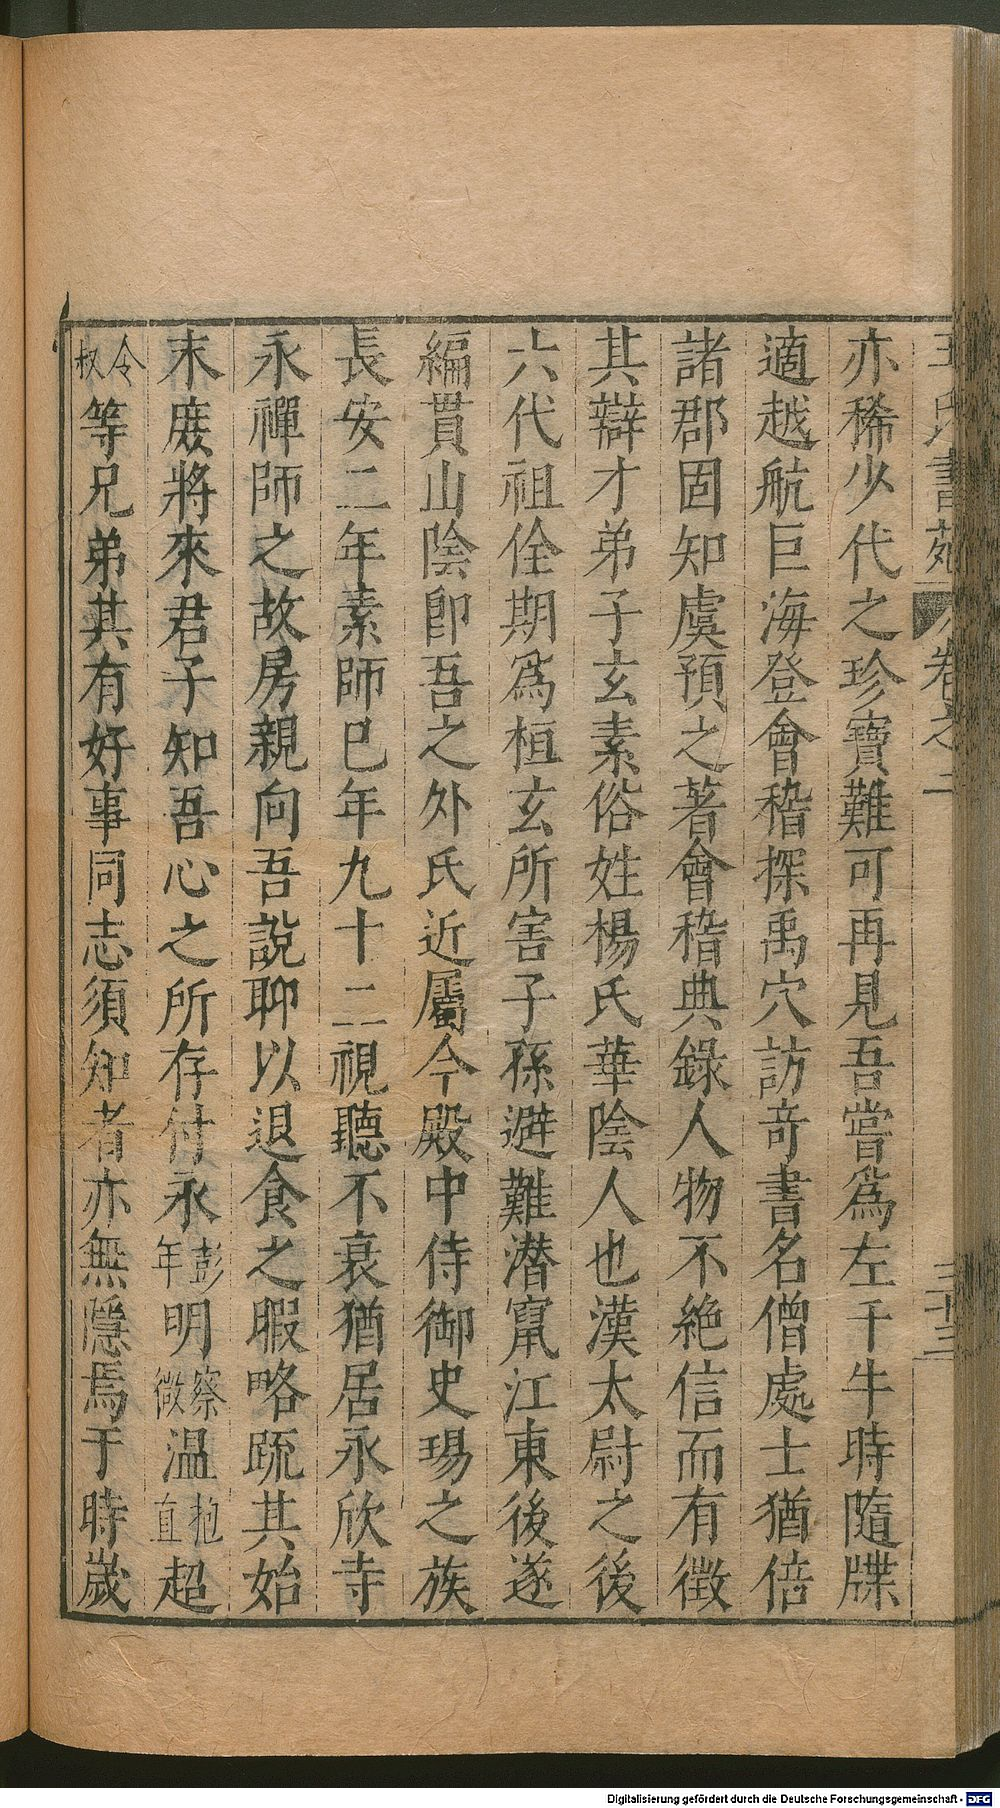 王氏書苑 卷之二 三十三
亦稀少代之珍寶難可再見吾嘗爲左千牛時隨牒
適越航巨海登會稽探禹穴訪奇書名僧處士猶倍
諸郡固知虞預之著會稽典錄人物不絶信而有徴
其辯才弟子玄素俗姓楊氏華陰人也漢太尉之後
六代祖佺期爲桓玄所害子孫避難潜竄江東後遂
編貫山陰卽吾之外氏近屬今殿中侍御史瑒之族
長安二年素師巳年九十二視聽不衰猶居永欣寺
永禪師之故房親向吾說聊以退食之暇略䟽其始
末庻將來君子知吾心之所存付永彭年明察微温抱直超
令叔等兄弟其有好事同志須知者亦無隱焉于時歲
Digitalisierung gefördert durch die Deutsche Forschungsgemeinschaft - DFG